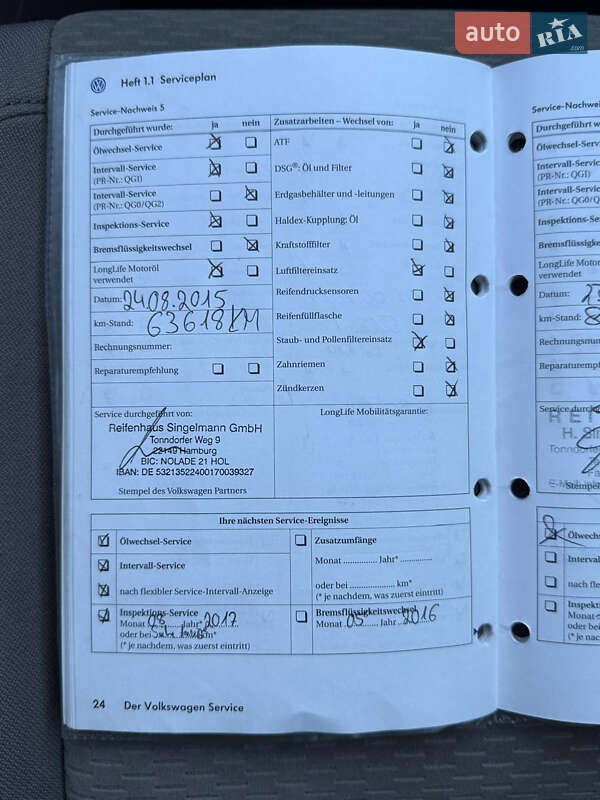 auto RIA .com
Heft 1.1 Serviceplan
Service-Nachweis 5
Durchgeführt wurde: ja nein
Ölwechsel-Service
Intervall-Service
(PR-Nr.: QG1)
Intervall-Service
(PR-Nr.: QG0/QG2)
Inspektions-Service
Bremsflüssigkeitswechsel
LongLife Motoröl
verwendet
Datum: 24.08.2015
km-Stand: 63618KM
Rechnungsnummer:
Reparaturempfehlung
Zusatzarbeiten – Wechsel von: ja nein
ATF
DSG®: Öl und Filter
Erdgasbehälter und -leitungen
Haldex-Kupplung: Öl
Kraftstofffilter
Luftfiltereinsatz
Reifendrucksensoren
Reifenfüllflasche
Staub- und Pollenfiltereinsatz
Zahnriemen
Zündkerzen
Service durchgeführt von:
Reifenhaus Singelmann GmbH
Tonndorfer Weg 9
22149 Hamburg
BIC: NOLADE 21 HOL
IBAN: DE 53213522400170039327
Stempel des Volkswagen Partners
LongLife Mobilitätsgarantie:
Ihre nächsten Service-Ereignisse
Ölwechsel-Service
Intervall-Service
nach flexibler Service-Intervall-Anzeige
Inspektions-Service
Monat 08 Jahr* 2017
oder bei km*
(* je nachdem, was zuerst eintritt)
Zusatzumfänge
Monat .............. Jahr* ..............
oder bei .................. km*
(* je nachdem, was zuerst eintritt)
Bremsflüssigkeitswechsel
Monat 05 Jahr 2016
24 Der Volkswagen Service
Service-Nachweis
Durchgeführt wurde:
Ölwechsel-Service
Intervall-Service
(PR-Nr.: QG1)
Intervall-Service
(PR-Nr.: QG0/Q
Inspektions-Service
Bremsflüssigkeit
LongLife Motoröl
verwendet
Datum:
km-Stand:
Rechnungsnumm
Reparaturempfe
Service durchge
REI
Tonndor
E-Mail:
Stempel
Ölwechs
Interval
nach flex
Inspekti
Monat
oder bei
(* je nach